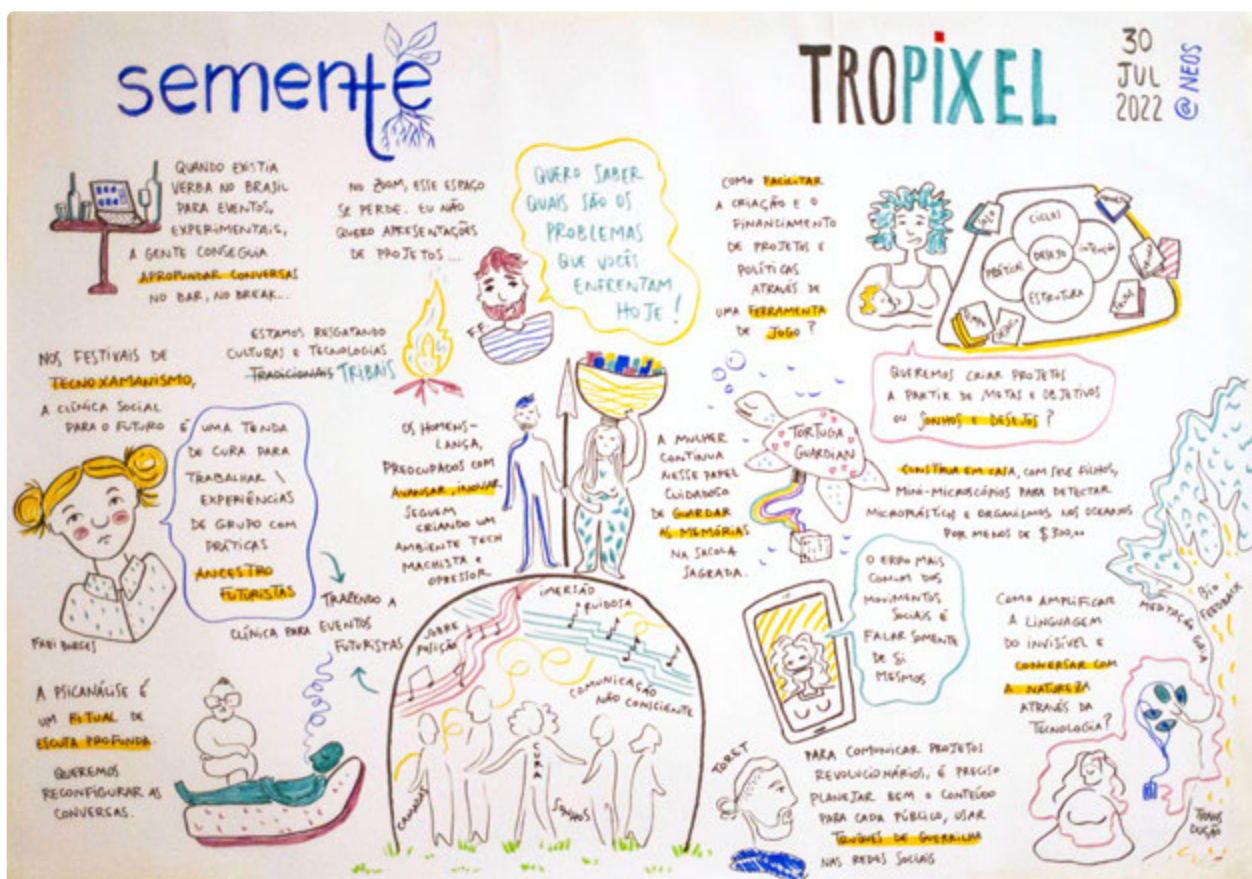 semente
TROPIXEL
30
JUL
2022
@ NEOS
QUANDO EXISTIA
VERBA NO BRASIL
PARA EVENTOS,
EXPERIMENTAIS,
A GENTE CONSEGUIA
APROFUNDAR CONVERSAS
NO BAR, NO BREAK...
NO ZOOM, ESSE ESPAÇO
SE PERDE. EU NÃO
QUERO APRESENTAÇÕES
DE PROJETOS...
F.F.
QUERO SABER
QUAIS SÃO OS
PROBLEMAS
QUE VOCÊS
ENFRENTAM
HOJE!
COMO FACILITAR
A CRIAÇÃO E O
FINANCIAMENTO
DE PROJETOS E
POLÍTICAS
ATRAVÉS DE
UMA FERRAMENTA
DE JOGO?
CICLOS
PRÁTICAS
DESEJO
INTENÇÃO
ESTRUTURA
TEMPO
QUEREMOS CRIAR PROJETOS
A PARTIR DE METAS E OBJETIVOS
OU SONHOS E DESEJOS?
ESTAMOS RESGATANDO
CULTURAS E TECNOLOGIAS
TRADICIONAIS TRIBAIS
NOS FESTIVAIS DE
TECNOXAMANISMO,
A CLÍNICA SOCIAL
PARA O FUTURO É
UMA TENDA
DE CURA PARA
TRABALHAR
EXPERIÊNCIAS
DE GRUPO COM
PRÁTICAS
ANCESTRO
FUTURISTAS
FABI BORGES
TRAZENDO A
CLÍNICA PARA EVENTOS
FUTURISTAS
OS HOMENS-
LANÇA,
PREOCUPADOS COM
AVANÇAR, INOVAR
SEGUEM
CRIANDO UM
AMBIENTE TECH
MACHISTA E
OPRESSOR
A MULHER
CONTINUA
NESSE PAPEL
CUIDADOSO
DE GUARDAR
AS MEMÓRIAS
NA SACOLA
SAGRADA.
TORTUGA
GUARDIAN
CONSTRUA EM CASA, COM SEUS FILHOS,
MINI-MICROSCÓPIOS PARA DETECTAR
MICROPLÁSTICOS E ORGANISMOS NOS OCEANOS
POR MENOS DE $300,00
O ERRO MAIS
COMUM DOS
MOVIMENTOS
SOCIAIS É
FALAR SOMENTE
DE SI
MESMOS
COMO AMPLIFICAR
A LINGUAGEM
DO INVISÍVEL E
CONVERSAR COM
A NATUREZA
ATRAVÉS DA
TECNOLOGIA?
MEDITAÇÃO GAIA
BIO
FEEDBACK
TRANS
DUÇÃO
A PSICANÁLISE É
UM RITUAL DE
ESCUTA PROFUNDA.
QUEREMOS
RECONFIGURAR AS
CONVERSAS.
SOBRE
POSIÇÃO
IMERSÃO
RUIDOSA
COMUNICAÇÃO
NÃO CONSCIENTE
CAMADAS
CURA
SONHOS
TORET
PARA COMUNICAR PROJETOS
REVOLUCIONÁRIOS, É PRECISO
PLANEJAR BEM O CONTEÚDO
PARA CADA PÚBLICO, USAR
TRUQUES DE GUERRILHA
NAS REDES SOCIAIS